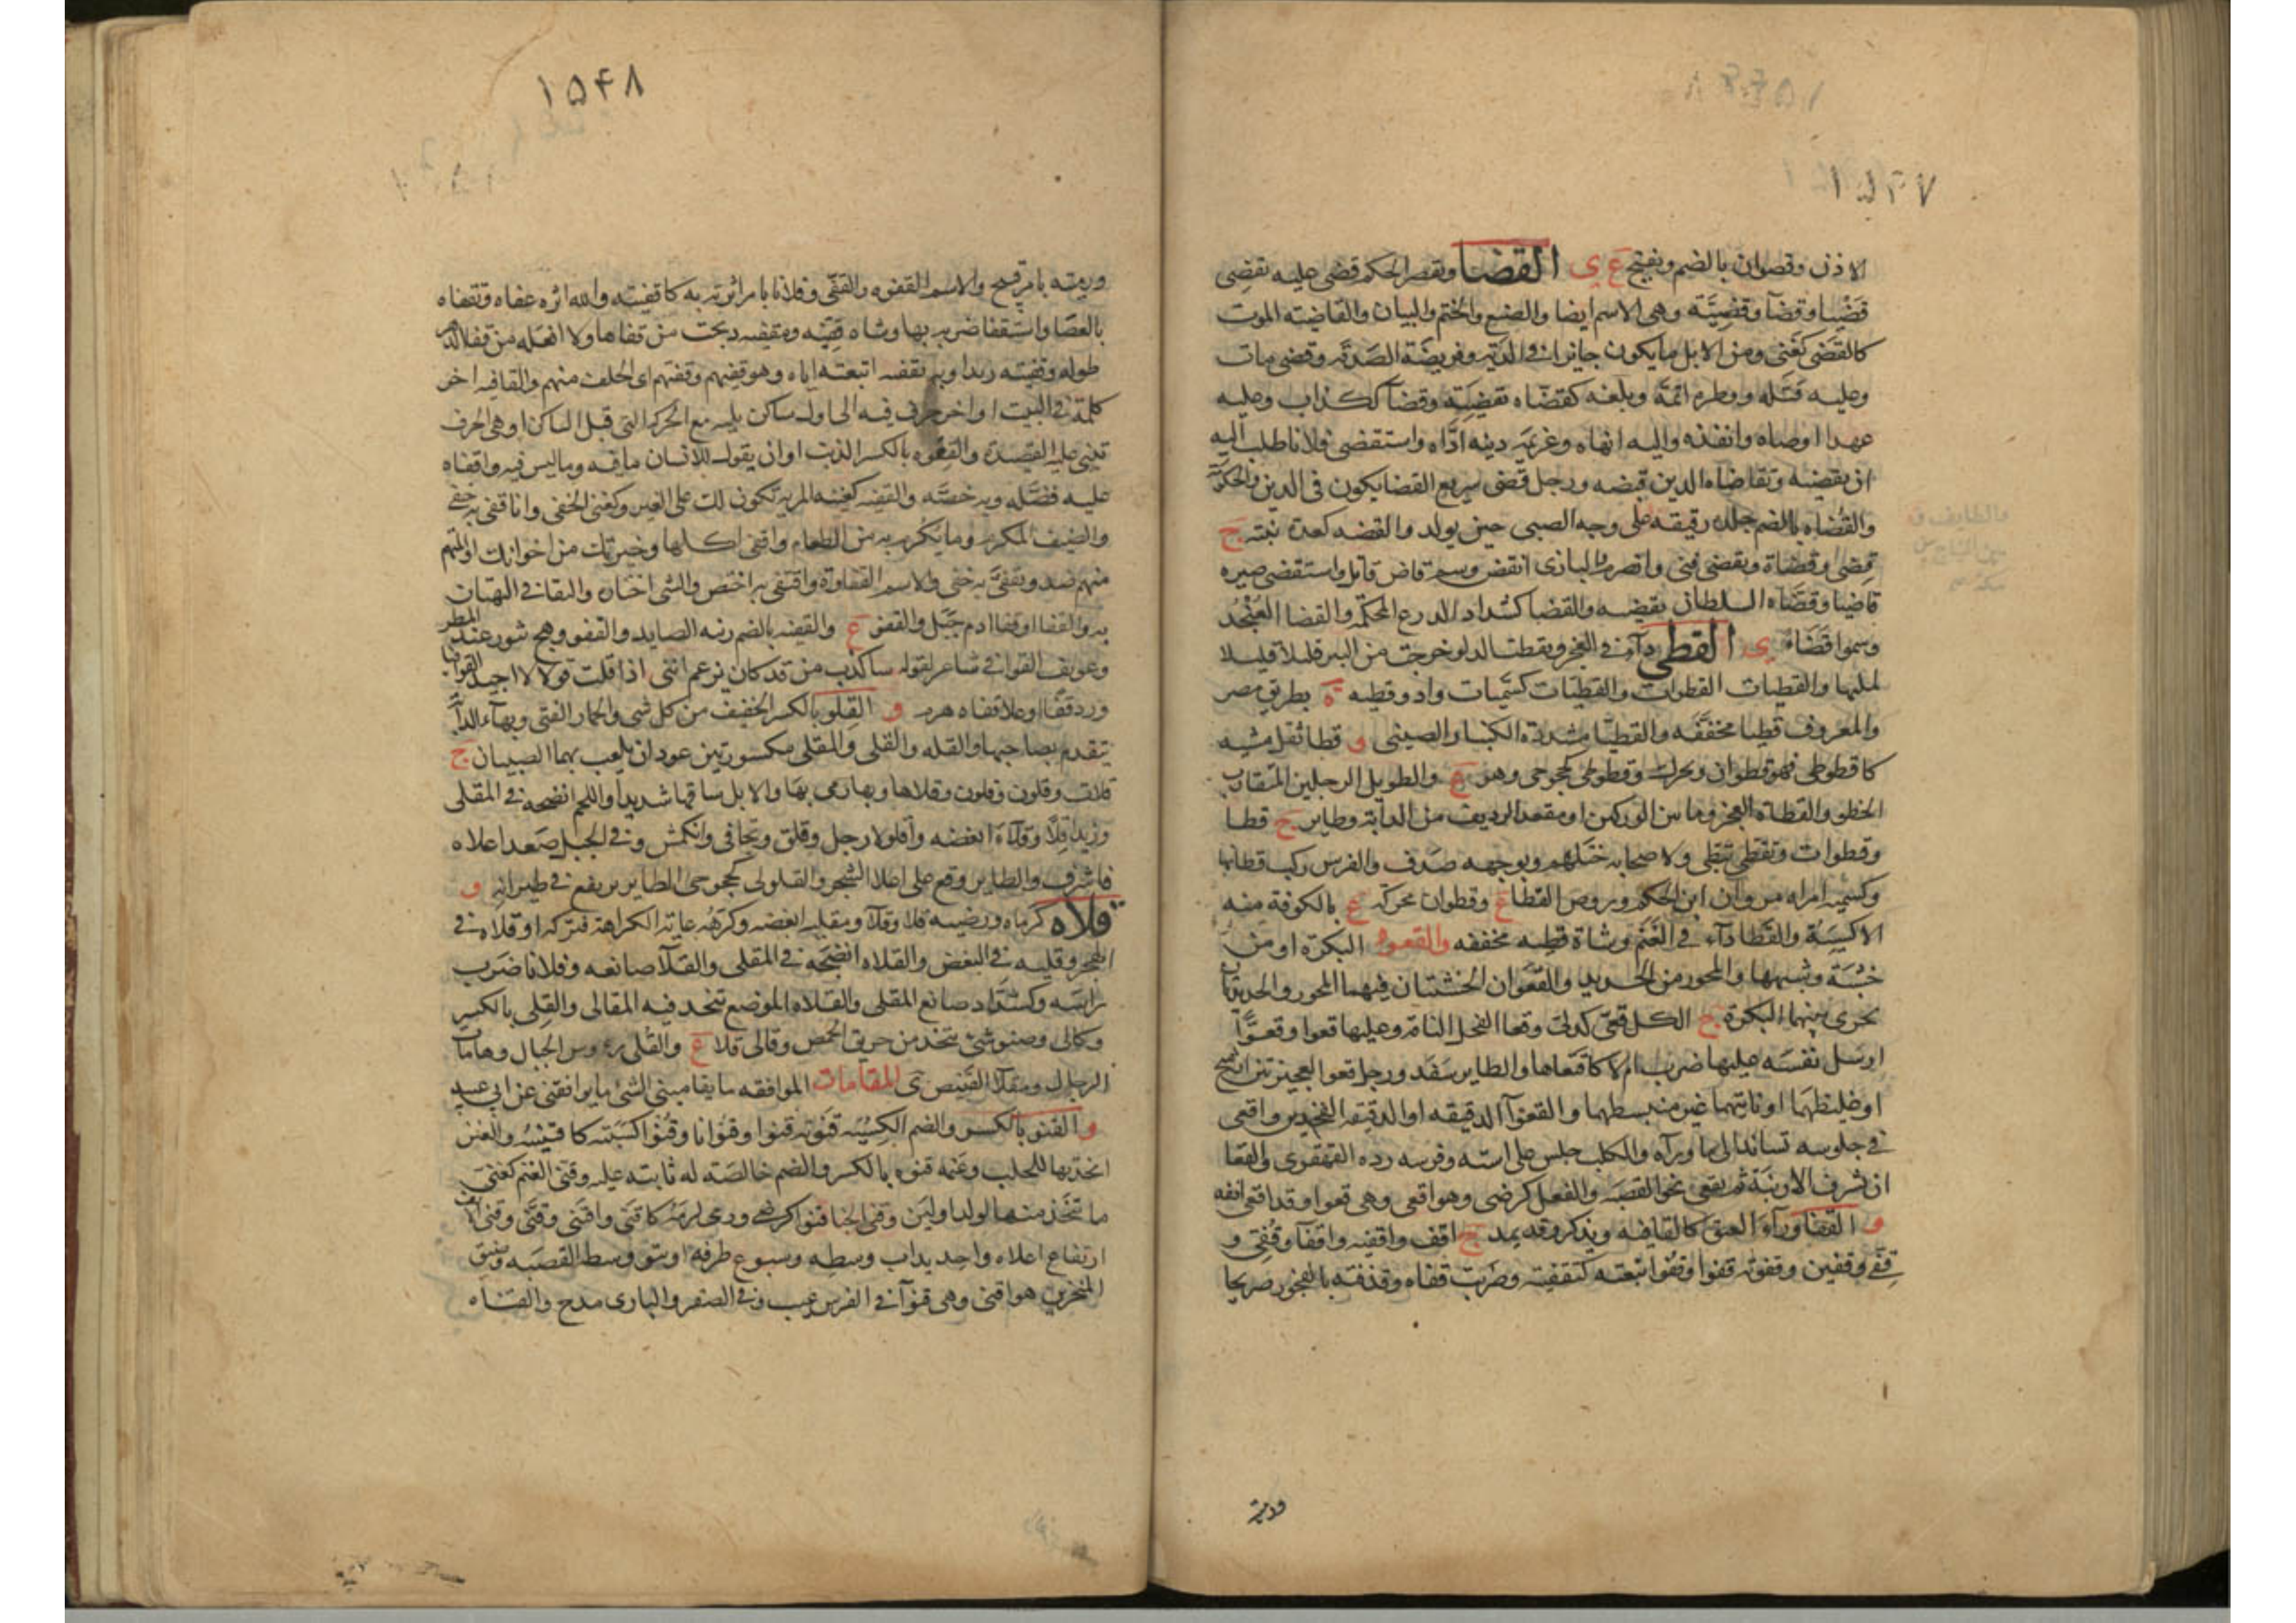 ١٥٤٧
الاذن وقصوان بالضم ويفتح ع ى القضا ويقصر الحكم قضى عليه يقضى
قضيا وقضآ وقضيّة وهى الاسم ايضا والصنع والحتم والبيان والقاضيته الموت
كالقضى كغنى ومن الابل ما يكون جايزا فى الدية وفريضة الصدقة وقضى مات
وعليه قتله ووطره اتمّه وبلغه كقضّاه تقضيته وقضآ ككذاب وعليه
عهدا اوصاه وانفذه واليه انهاه وغريمه دينه ادّاه واستقضى فلانا طلب اليه
ان يقضيه وتقاضاه الدين قبضه ورجل قضى سريع القضا يكون فى الدين والحكومة
والقضاه بالضم جلدة رقيقه على وجه الصبى حين يولد والقضه كعدة نبته ج
قضى وقضاة وتقضى فنى وانصرم والبازى انقض وسم قاض قاتل واستقضى صيره
قاضيا وقضّاه السلطان تقضيه والقضا كشداد الدرع المحكمه والقضا العنجد
وسموا قضّاء ى القطى دآء فى العجز وتقطت الدلو خرجت من البير قليلا قليلا
لمليها والقطيات القطوات والقطيّات كسميات واد وقطيه ة بطريق مصر
والمعروف قطيا مخففه والقطيّا مشددة الكبا والصينى و قطا ثقل مشيه
كاقطوطى فهو قطوان ويحرك وقطوطى كخجوجى وهو ع والطويل الرجلين المتقارب
الخطو والقطاة العجز وما بين الوركين او مقعد الرديف من الدابة وطاير ج قطا
وقطوات وتقطى تثقلى ولاصحابه ختلهم وبوجهه صدف والفرس ركب قطاتها
وكسميه امراه مروان ابن الحكم وروض القطا ع وقطوان محركة ع بالكوفة منه
الاكسيّة والقطا دآء فى الغنم وشاة قطيه مخففه والقعو البكرة او من
خشبة وشبهها والمحور من الحديد والقعوان الخشبتان فيهما المحور والحديدتان
تجرى بينهما البكرة ج الكل قعى كدلى وقعا الفحل الناقة وعليها قعوا وقعوّا
ارسل نفسه عليها ضرب ام لا كاقتعاها والطاير سفد ورجل قعو العجيزتين ارسح
او غليظهما او ناتيهما غير منبسطهما والقعوآ الدقيقه او الدقيقه الفخذين واقعى
فى جلوسه تساند الى ما ورآه والكلب جلس على استه وفرسه رده القهقرى والقعا
ان تشرف الارنبة ثم تقعى نحو القصبه والفعل كرضى وهو اقعى وهى قعوا وقد اقعى انفه
و القفا ورآء العنق كالقافيه ويذكر وقد يمد ج اقف واقفيه واقفآ وقفى و
قفى وقفين وقفوته قفوا وقفوا تبعته كتقفيته وضربت قفاه وقذفته بالفجور صريحا
ورميته
١٥٤٨
ورميته بامر قبيح والاسم القفوه والقفى وفلانا بامر اثرته به كاقفيته والله اثره عفاه وتقفاه
بالعصا واستقفاه ضربه بها وشاه قفيّه ومقفيه ذبحت من قفاها ولا افعله من قفا الدهر
طوله وقفيته زيدا وبه تقفيه اتبعته اياه وهو قفيهم وقفيتهم اى الخلف منهم والقافيه اخر
كلمة فى البيت او اخر حرف فيه الى اول ساكن يليه مع الحركه التى قبل الساكن او هى الحرف
تبنى عليه القصيدة والقفوه بالكسر الذنب او ان يقول للانسان ما فيه وما ليس فيه واقفاه
عليه فضّله وبه خصّه والقفيه كغنيه المزيه تكون لك على الغير وكغنى الحفى وانا قفى به حفى
والضيف المكرم وما يكرم به من الطعام واقفى اكلها وخيرتك من اخوانك او المتهم
منهم ضد وتقفّى به حفى والاسم القفاوة واقتفى به اختص والشى اختاره والتقافى البهتان
به والقفا او قفا ادم جبل والقفو ع والقفيه بالضم زبيه الصايد والقفو وهج يثور عند المطر
وعويف القوافى شاعر لقوله ساكذب من قد كان يزعم اننى اذا قلت قولا لا اجيد القوافيا
ورد قفا او علا قفاه هرم و القلو بالكسر الخفيف من كل شى والحمار الفتى وبهآء الدابّة
تتقدم بصاحبها والقله والقلى والمقلى مكسورتين عودان يلعب بهما الصبيان ج
قلات وقلون وقلون وقلاها وبها رمى بها والابل ساقها شديدا واللحم انضجه فى المقلى
وزيدا قلا وقلآء ابغضه واقلولا رجل وقلق وتجافى وانكمش وفى الجبل صعد اعلاه
فاشرف والطاير وقع على اعلا الشجر والقلولى كخجوجى الطاير يرتفع فى طيرانه و
قلاه كرماه ورضيه قلا وقلآ ومقليه ابغضه وكرهه غاية الكراهة فتركه او قلاه فى
الهجر وقليه فى البغض والقلاه انضجه فى المقلى والقلآء صانعه وفلانا ضرب
راسه وكشدّاد صانع المقلى والقلاه الموضع تتخذ فيه المقالى والقلى بالكسر
وكالى وصنو شئ يتخذ من حريق الحمض وقالى قلا ع والقلى رءوس الجبال وهامات
الرجال ومقلآ القنيص ى المقامات الموافقه ما يقامينى الشئ ما يوافقنى عن ابى عبيد
و القنو بالكسر والضم الكسبه قنوته قنوا وقنوانا وقنوّا اكسبته كاقتنيته والعنز
اتخذتها للحلب وغنمه قنوه بالكسر والضم خالصته له ثابته عليه وقنى الغنم كغنى
ما يتخذ منها لولد او لبن وقنى الحيا قنوا كرضى ورمى لزمه كاقنى واقتنى وقنّى وقنى الانف
ارتفاع اعلاه واحديداب وسطه وسبوغ طرفه او نتو وسط القصبه وضيق
المنخرين هو اقنى وهى قنوآ فى الفرس عيب وفى الصقر والبازى مدح والقناه